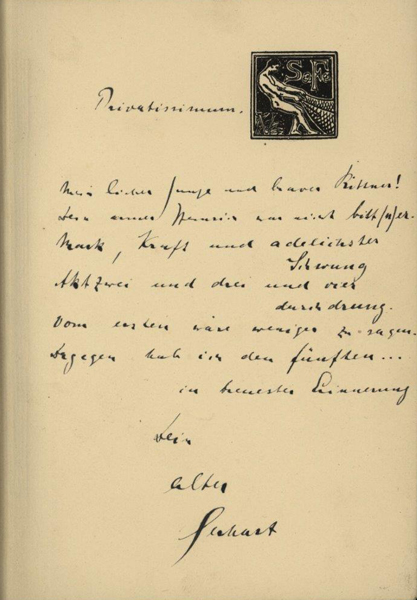 Privatissimum.
Mein lieber Junge und braver Rittner!
Dein armer Heinrich war nicht bitt(n)er.
Mark, Kraft und adelichster
Schwung
Akt zwei und drei und vier
durchdrung.
Vom ersten wäre weniger zu sagen.
Dagegen hab ich den fünften...
in treuester Erinnerung
Dein
alter
Gerhart